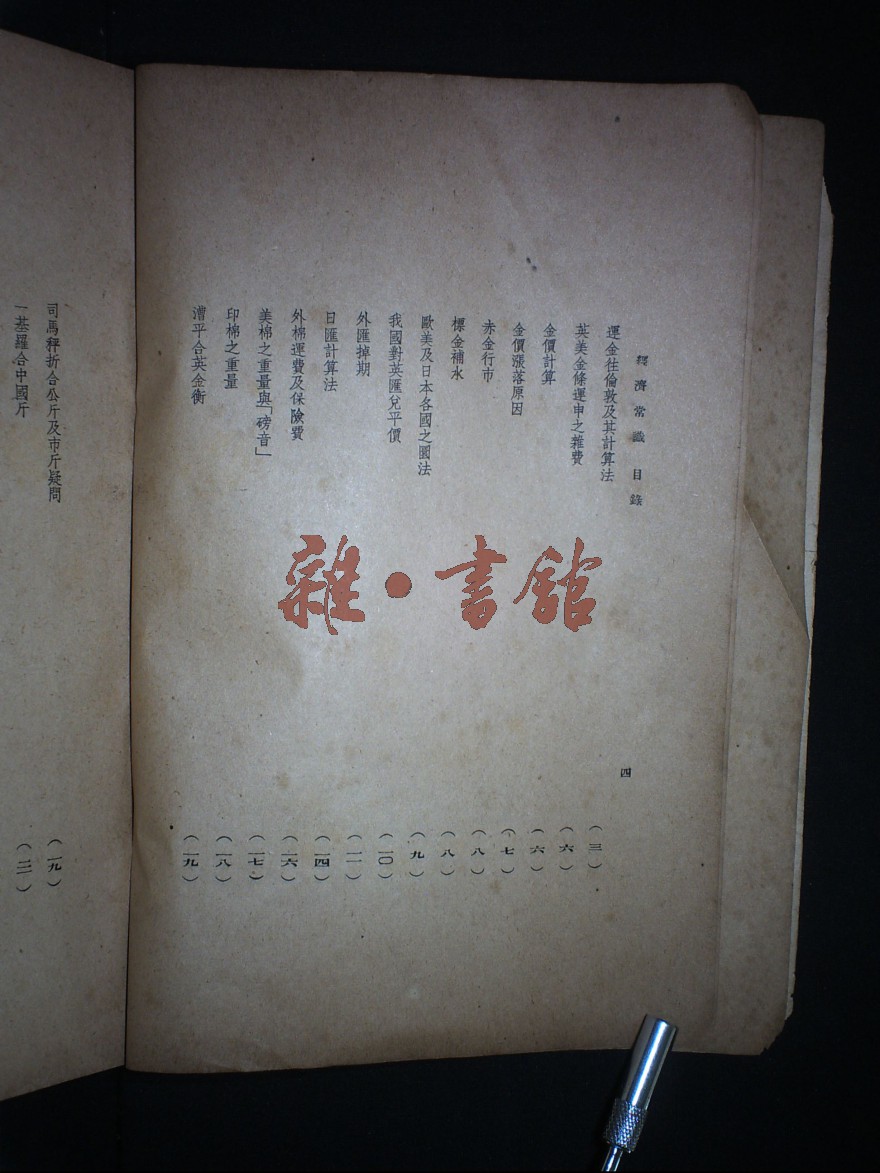 經濟常識 目錄
四
運金往倫敦及其計算法 (三)
英美金條運申之雜費 (六)
金價計算 (六)
金價漲落原因 (七)
赤金行市 (八)
標金補水 (八)
歐美及日本各國之圜法 (九)
我國對英匯兌平價 (一〇)
外匯掉期 (一一)
日匯計算法 (一四)
外棉運費及保險費 (一六)
美棉之重量與「磅音」 (一七)
印棉之重量 (一八)
漕平合英金衡 (一九)
司馬秤折合公斤及市斤疑問 (一九)
一基羅合中國斤
雜•書館